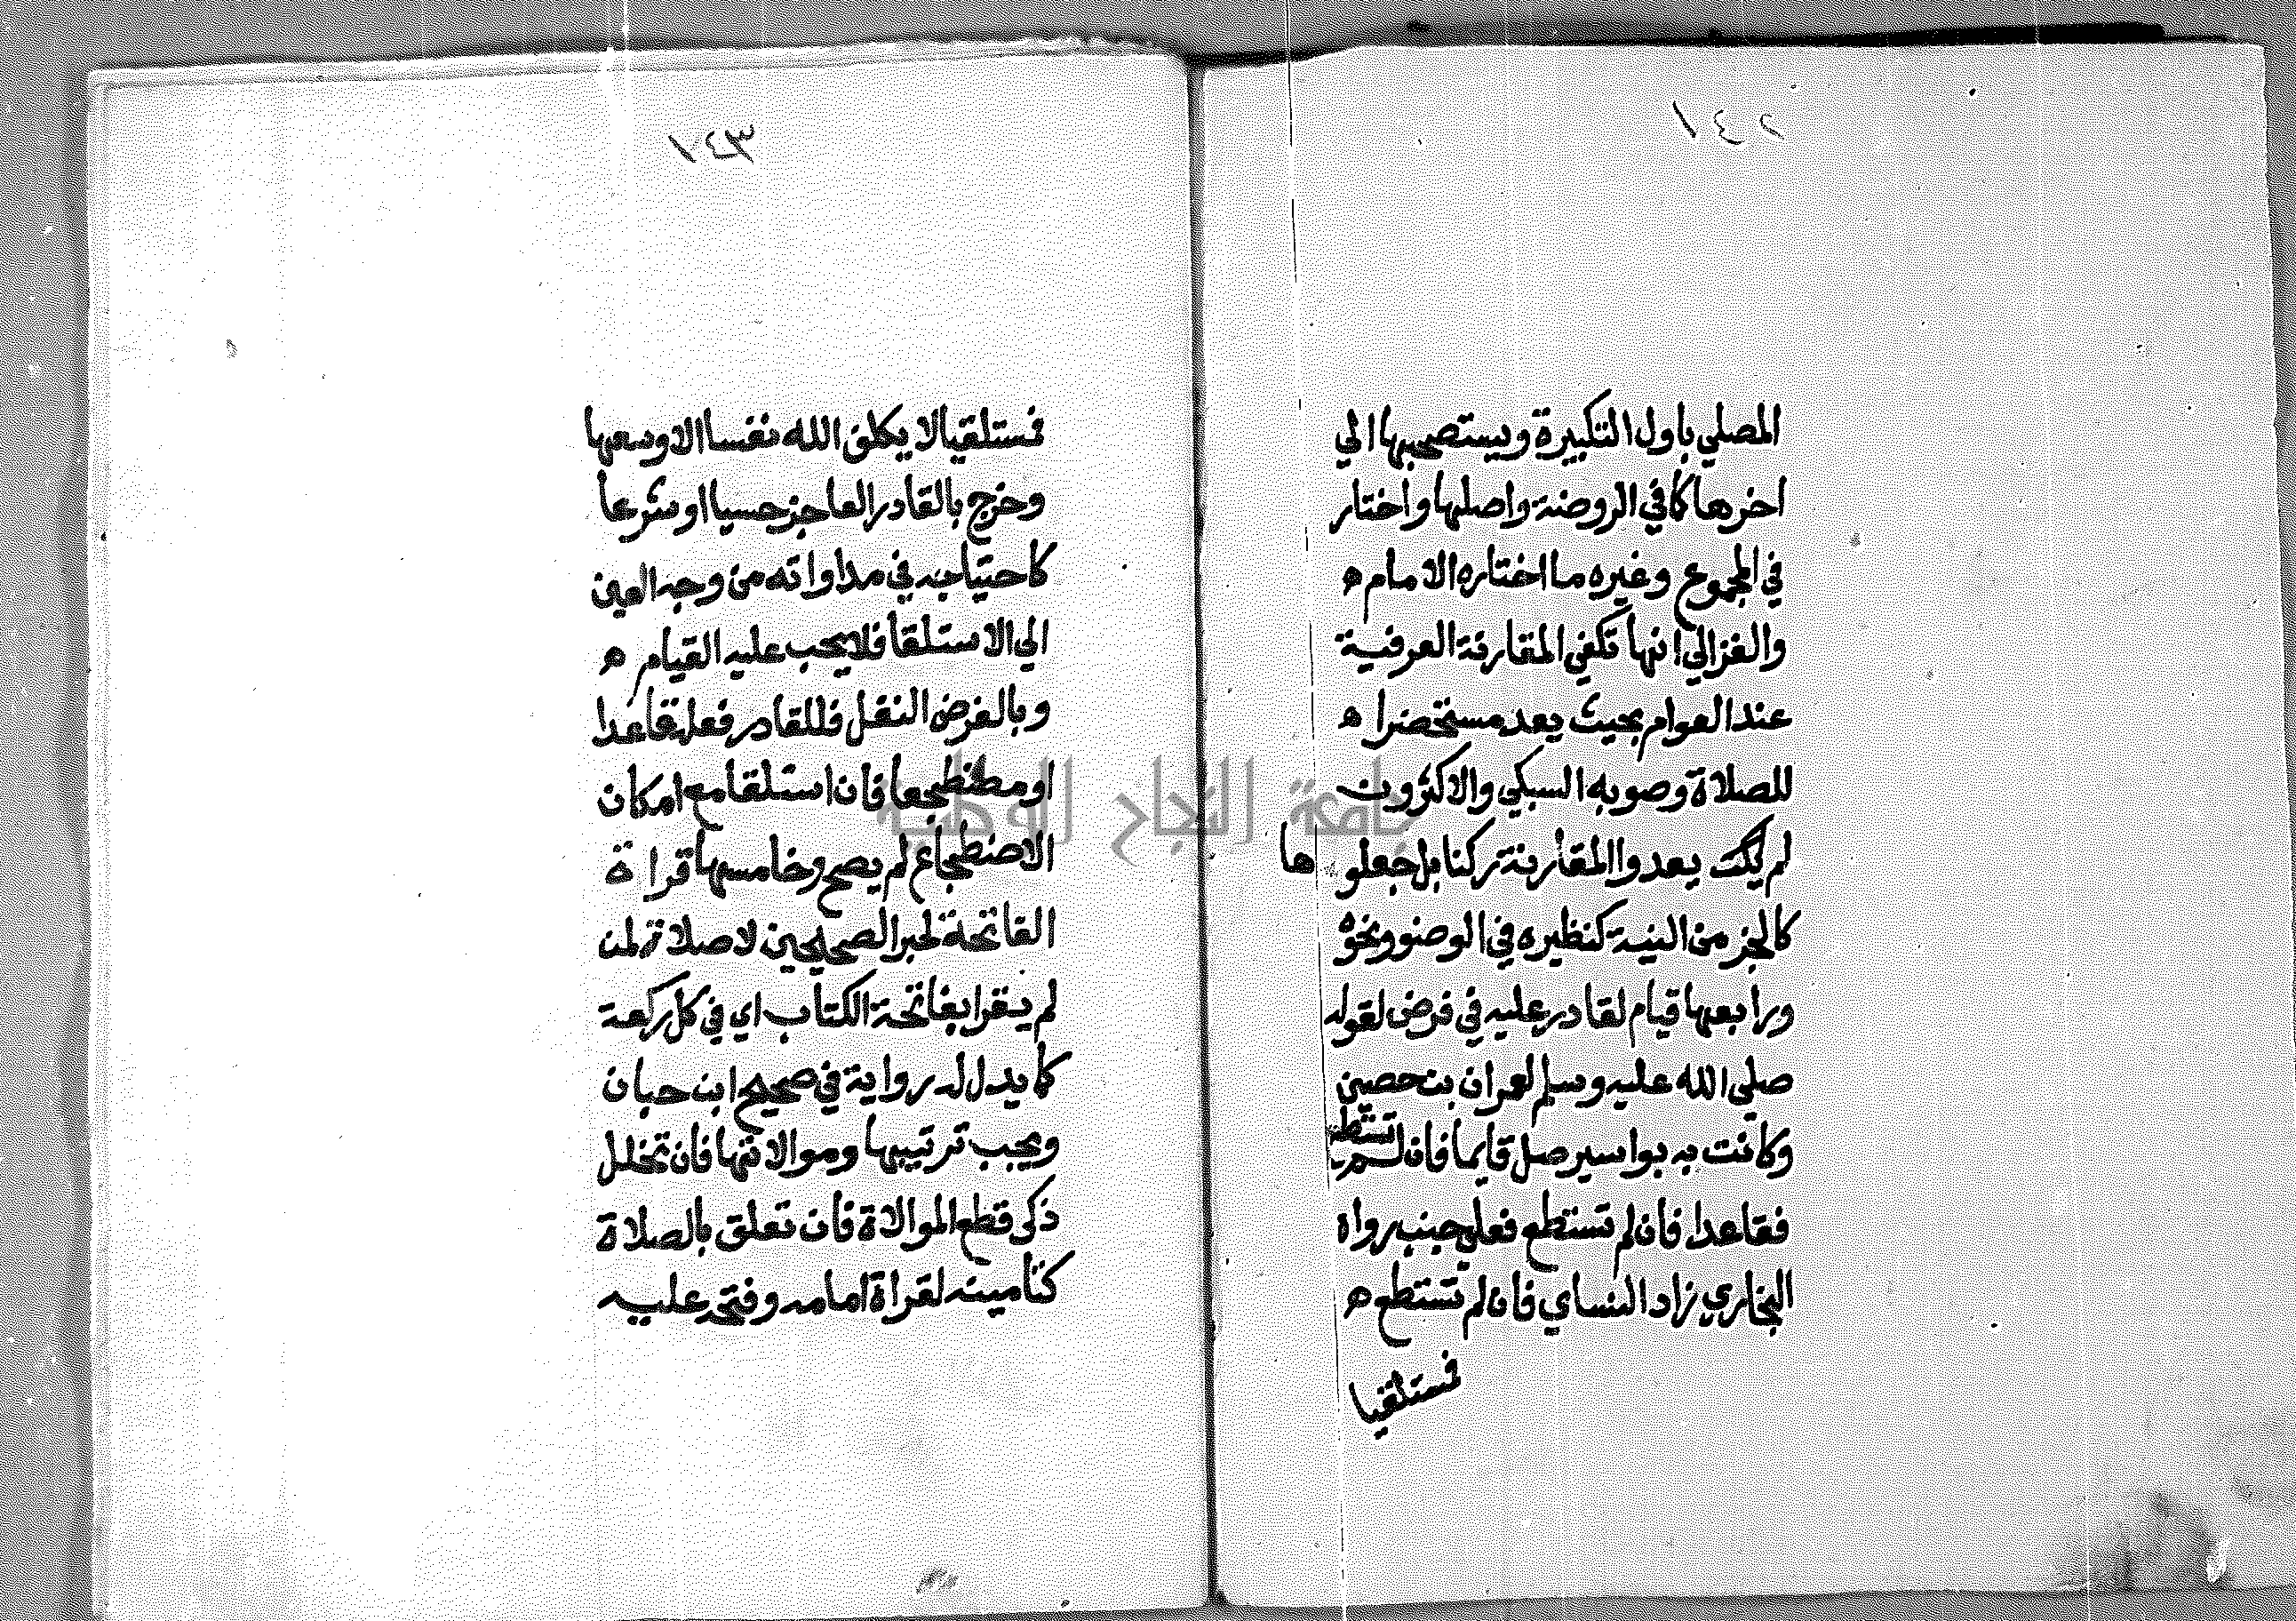 ٢٤١
المصلي باول التكبيرة ويستصحبها الي
اخرها كما في الروضة واصلها واختار
في المجموع وغيره ما اختاره الامام ه
والغزالي انها تكفي المقارنة العرفية
عند العوام بحيث يعد مستحضرا ه
للصلاة وصوبه السبكي والاكثرون
لم يك يعدوا المقارنة ركنا بل جعلوها
كالجز من النية كنظيره في الوضو ونحوه
ورابعها قيام لقادر عليه في فرض لقوله
صلي الله عليه وسلم لعمران بن حصين
وكانت به بواسير صل قايما فان لم تستطع
فقاعدا فان لم تستطع فعلي جنب رواه
البخاري زاد النساي فان لم تستطع ه
فمستلقيا
٣٤١
فمستلقيا لا يكلف الله نفسا الا وسعها
وخرج بالقادر العاجز حسيا او شرعا
كاحتياجه في مداواته من وجه العين
الي الاستلقا فلا يجب عليه القيام ه
وبالفرض النفل فللقادر فعله قاعدا
او مضطجعا فان استلقا مع امكان
الاضطجاع لم يصح وخامسها قراة
الفاتحة لخبر الصحيحين لا صلاة لمن
لم يقرا بفاتحة الكتاب اي في كل ركعة
كما يدل له رواية في صحيح ابن حبان
ويجب ترتيبها وموالاتها فان تخلل
ذكر قطع الموالاة فان تعلق بالصلاة
كتامينه لقراة امامه وفتحه عليه
جامعة النجاح الوطنية